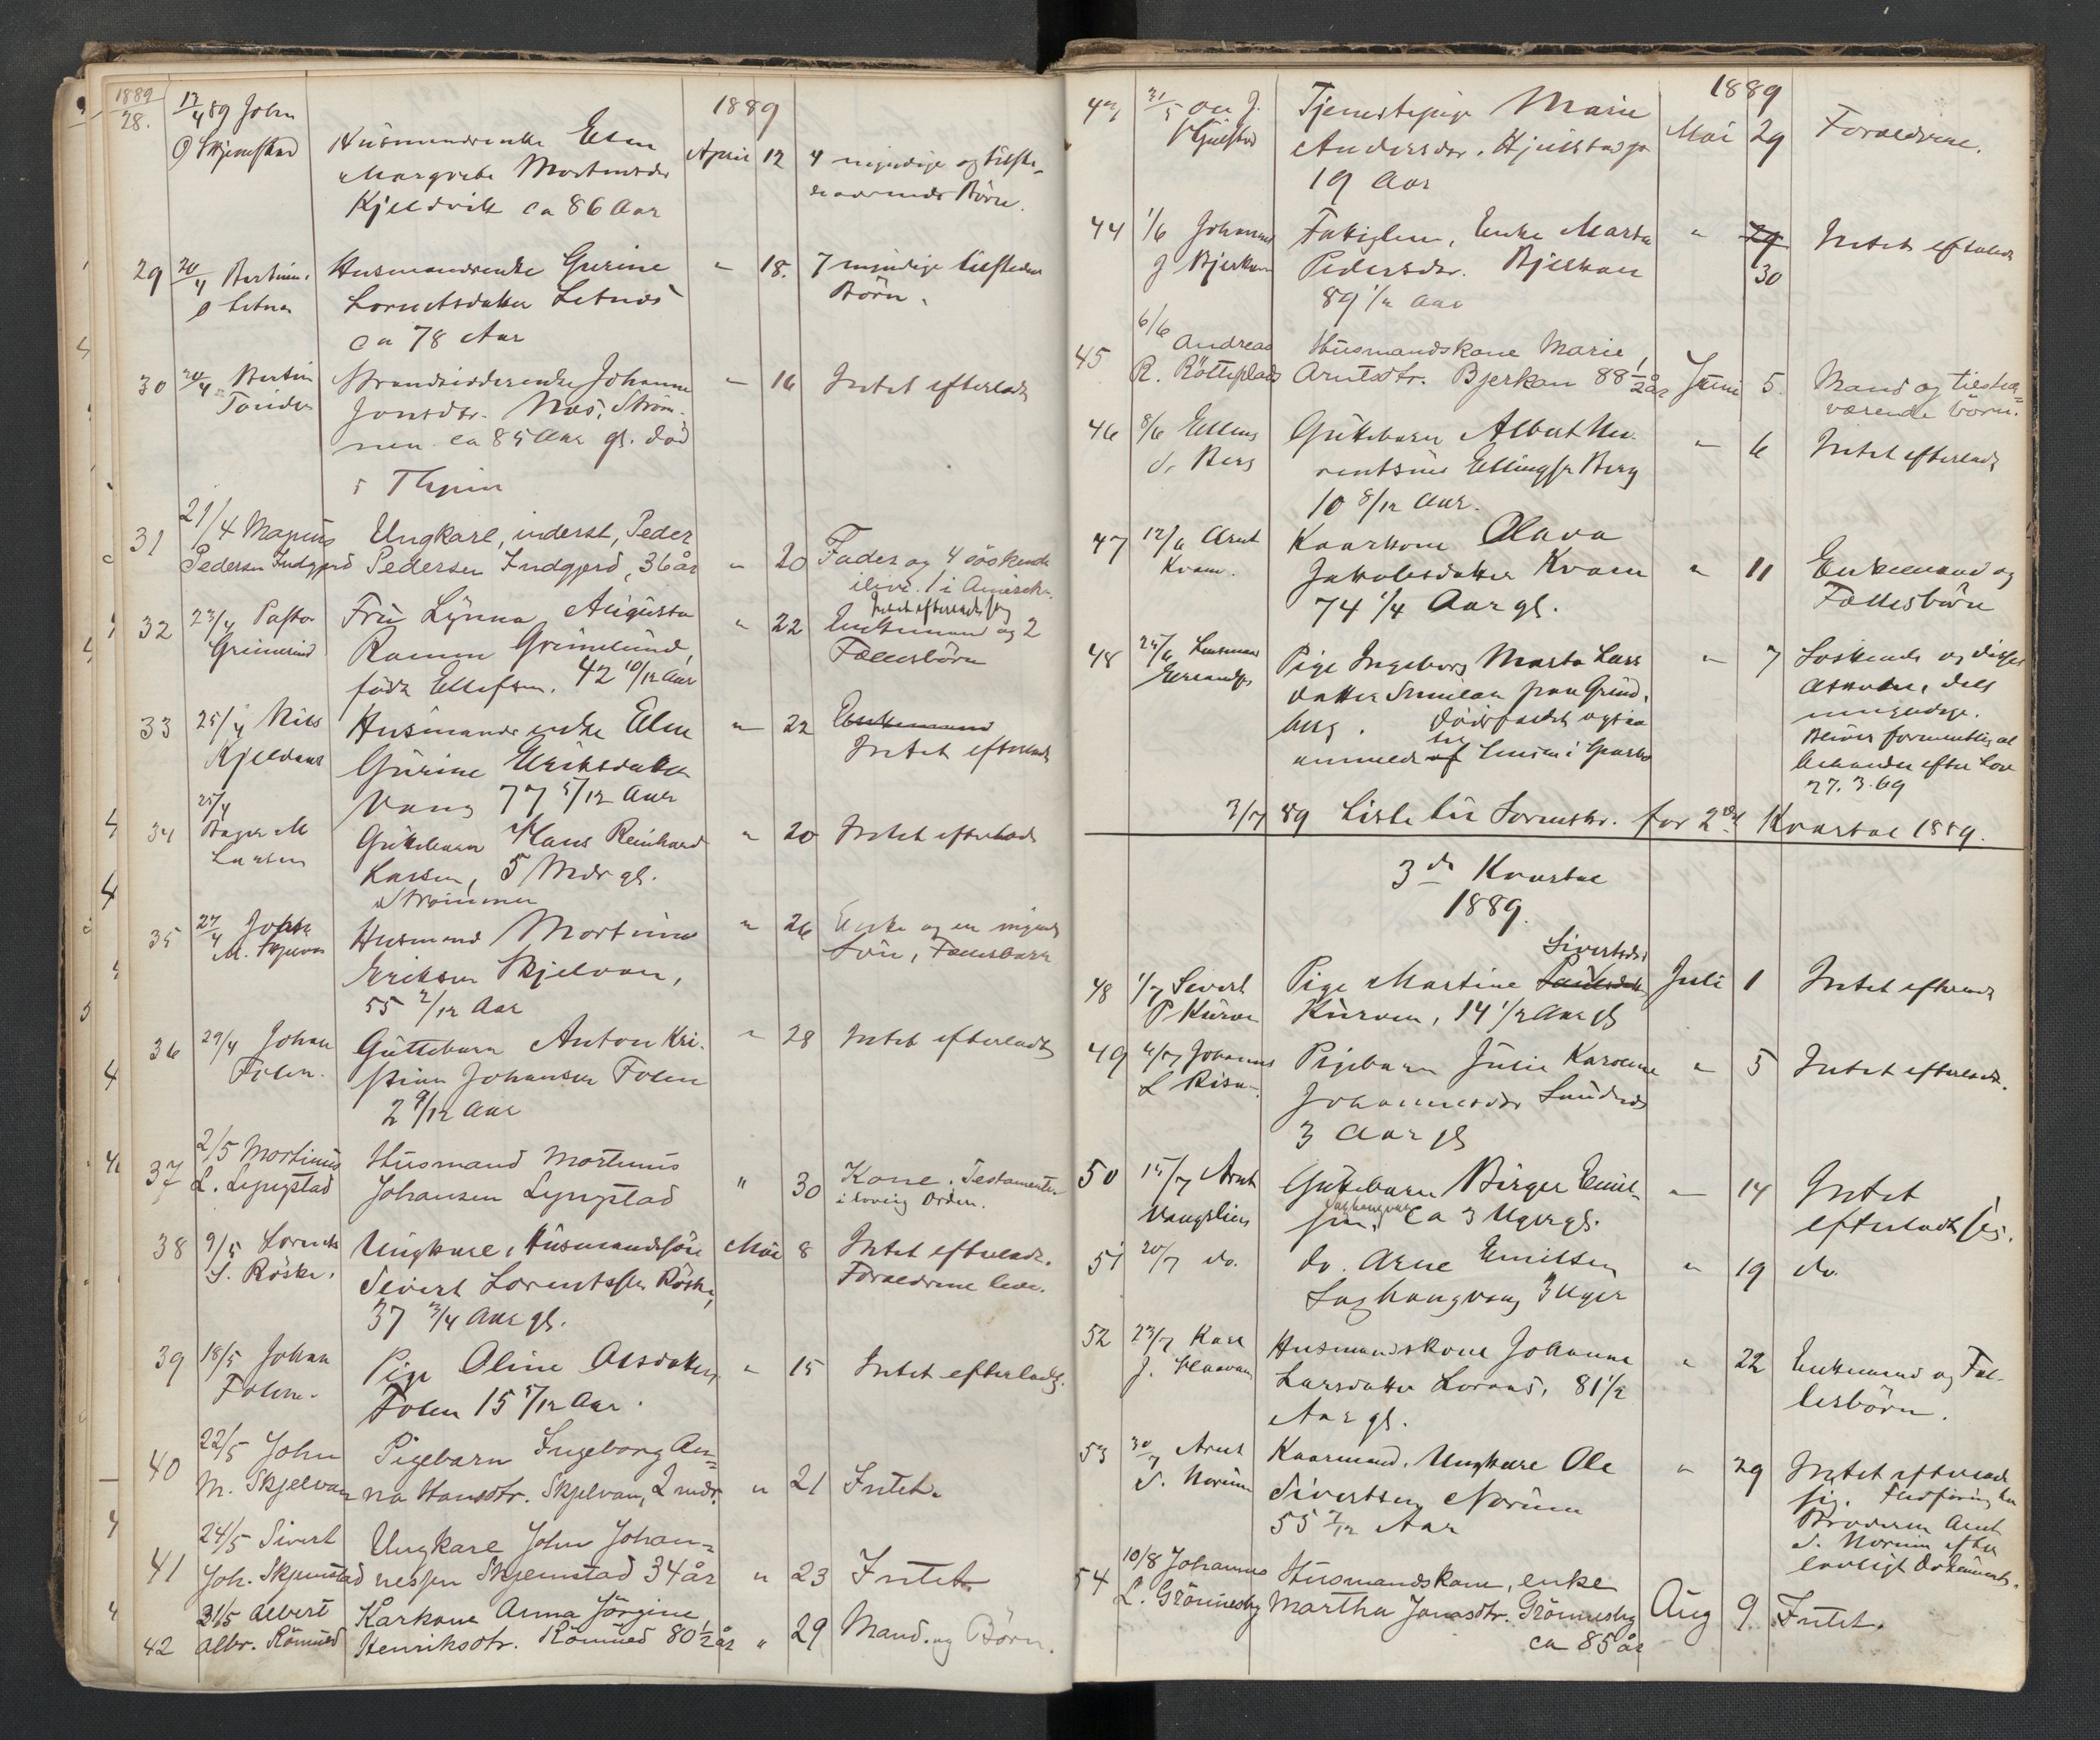 1889
28. 12/4 89 John
Skjemstad
1889
Husmandsenke Elen
Margrethe Mortensdr
Kjeldvik ca 86 Aar
April 12
4 myndige og tilste-
deværende Börn.
29 20/4 Bertin
Letnes
Husmandsenke Gurine
Lorentsdatter Letnes
ca 78 Aar
" 18.
7 myndige tilsteden
Börn.
30 20/4 Bertin
Strandsidderenke Johanna
Jonsdtr. Næs, Ström-
men ca 85 Aar gl. död
" 16
Intet efterladt
31 21/4 Magnus
Pedersen Indgjerd
Ungkarl, inderst, Peder
Pedersen Indgjerd, 36 år
" 20
Fader og 4 söskende
ilive. 1 i Amerika.
Intet efterladt sig
32 23/4 Pastor
Grimelund
Fru Lynna Augusta
Ramm Grimelund,
født Ellefsen. 42 10/12 Aar
" 22
Enkemand og 2
Fællesbörn
33 25/4 Nils
Husmandsenke Elen
Gurine Eriksdatter
Vang 77 5/12 Aar
" 22
Enkemand
Intet efterladt
34 25/4
Larsen
Guttebarn Hans Reinhard
Larsen, 5 Mdr gl.
Strömmen
" 20
Intet efterladt
35 27/4 John
M. Skjelvan
Husmand Mortinus
Eriksen Skjelvan,
55 2/12 Aar
" 26
Enke og en myndig
Sön, Fællesbarn
36 29/4 Johan
Folen.
Guttebarn Anton Kri-
stian Johansen Folen
2 9/12 Aar
" 28
Intet efterladt
37 2/5 Mortinus
L. Lyngstad
Husmand Mortinus
Johansen Lyngstad
" 30
Kone. Testamente
i lovlig Orden.
38 9/5 Lorents
S. Röske.
Ungkarl, Husmandssön
Sivert Lorentssen Röske,
37 3/4 Aar gl.
Mai 8
Intet efterladt.
Forældrene lever.
39 18/5 Johan
Folen.
Pige Oline Olsdatter
Folen 15 5/12 Aar.
" 15
Intet efterladt.
40 22/5 John
M. Skjelvan
Pigebarn Ingeborg An=
na Hansdtr. Skjelvan, 2 mdr.
" 21
Intet.
41 24/5 Sivert
Joh. Skjemstad
Ungkarl John Johan=
nessen Skjemstad 34 år
" 23
Intet.
42 31/5 Albert
Albr. Römued
Karkone Anna Jörgine
Henriksdtr. Römued 80 1/2 år
" 29
Mand og Börn.
1889
31/5
Tjenestepige Marie
Andersdr. Hjulstad
19 Aar
Mai 29
Forældrene.
44 1/6 Johannes
J Bjerkan
Fatiglem, Enke Marta
Pedersdr. Bjerkan
89 1/2 Aar
" 29
30
Intet efterladt
45 6/6 Andreas
R. Rötteplads
Husmandskone Marie
Arntsdtr. Bjerkan 88 1/2 år
Juni 5.
Mand og tilstede=
værende börn.
46 8/6 Elling
Berg
Guttebarn Albert
Ellingsen Berg
10 8/12 Aar.
" 6
Intet efterladt
47 12/6 Arnt
Kvam.
Kaarkone Olava
Jakobsdatter Kvam
74 1/4 Aar gl.
" 11
Enkemand og
Fællesbörn
48 25/6 Lensmand
Pige Ingeborg Marta Lars
datter fra Grind-
berg. Dödsfaldet ogsaa
anmeldt af til Lensm i Sparbu
" 7
Söskende og disses
Afkom, dels
umyndige.
Bliver formentlig at
behandle efter Lov
27. 3. 69
3/7 89 Liste til Sorenskr. for 2det Kvartal 1889.
3de Kvartal
1889.
48 1/7 Sivert
P Kurven
Sivertsdr
Pige Martine
Kurven, 14 1/2 Aar gl
Juli 1
Intet efterladt
49 6/7 Johannes
L Risan
Pigebarn Julie Karoline
Johannesdr Sundnes
3 Aar gl
" 5
Intet efterladt.
50 15/7 Arnt
Vangslien
Guttebarn Birger Emil-
sen, ca 3 Uger gl.
" 14
Intet
efterladt sig.
51 20/7 do.
do. Arne Emilsen
Saxhaugvang 3 Uger
" 19
do.
52 23/7 Karl
J.
Husmandskone Johanna
Larsdatter Loraas, 81 1/2
Aar gl.
" 22
Enkemand og Fæl-
lesbörn.
53 30/7 Arnt
S. Norum
Kaarmand, Ungkarl Ole
Sivertsen Norum
55 7/12 Aar
" 29
Intet efterladt
sig. Flödföring hos
Broderen Arnt
S. Norum efter
lovligt Dokument.
54 10/8 Johannes
L. Grönnesby
Husmandskone, enke
Martha Jonasdtr. Grönnesby
ca 85 år
Aug 9.
Intet.